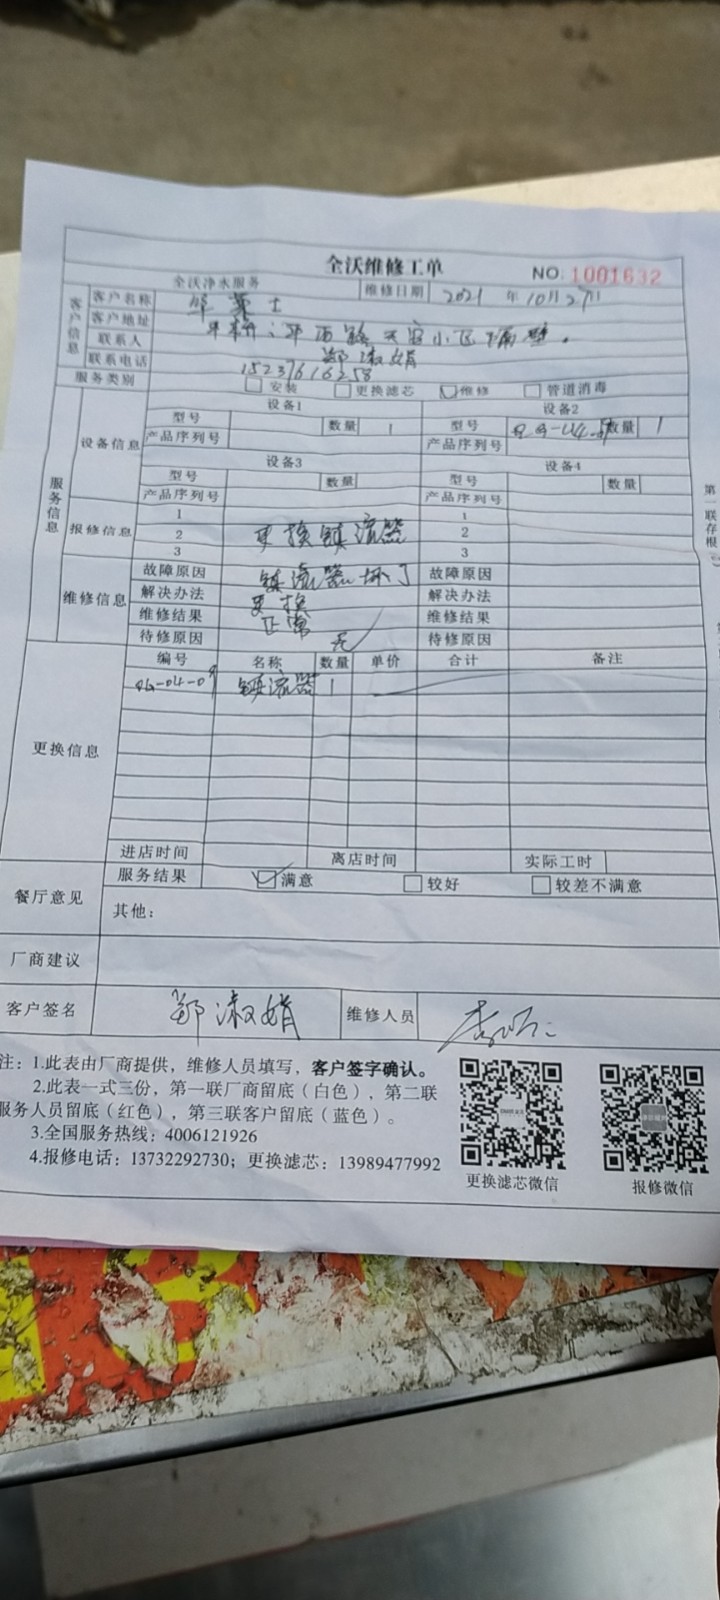 全沃维修工单
NO: 1001632
全沃净水服务 维修日期 2021 年 10月27日
客户信息
客户名称 华莱士
客户地址
联系人 郑淑娟
联系电话 15237616258
服务类别 安装 更换滤芯 维修 管道消毒
服务信息
设备信息
设备1 设备2
型号 数量 1 型号 数量 1
产品序列号 产品序列号
设备3 设备4
型号 数量 型号 数量
产品序列号 产品序列号
报修信息
1 1
2 更换镇流器 2
3 3
维修信息
故障原因 镇流器坏了 故障原因
解决办法 更换 解决办法
维修结果 正常 维修结果
待修原因 无 待修原因
更换信息
编号 名称 数量 单价 合计 备注
镇流器 1
进店时间 离店时间 实际工时
餐厅意见
服务结果 满意 较好 较差不满意
其他：
厂商建议
客户签名 郑淑娟 维修人员
注：1.此表由厂商提供，维修人员填写，客户签字确认。
2.此表一式三份，第一联厂商留底（白色），第二联
服务人员留底（红色），第三联客户留底（蓝色）。
3.全国服务热线：4006121926
4.报修电话：13732292730；更换滤芯：13989477992
更换滤芯微信 报修微信
第一联存根